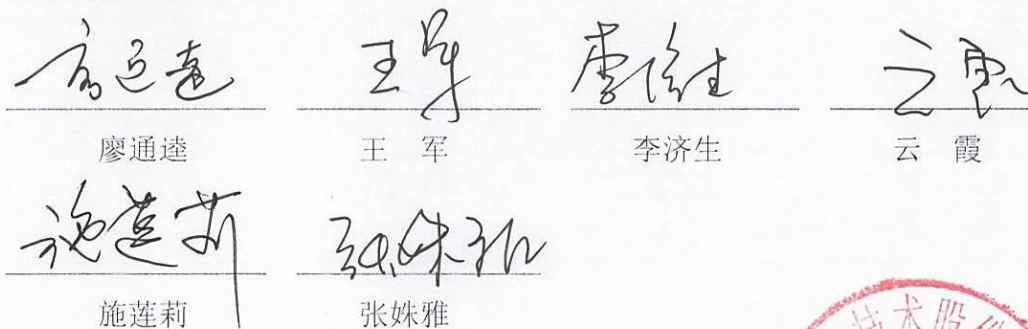 廖通逵 王军 李济生 云霞
施莲莉 张姝雅
技术股份